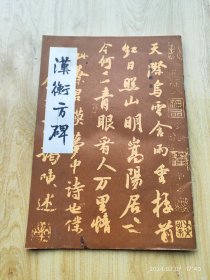 漢衡方碑
天際烏雲含雨重樓前
紅日照山明嵩陽居士
今何在青眼看人万里情
此蔡君謨夢中詩也僕
陳述
2024.02.07 17:40